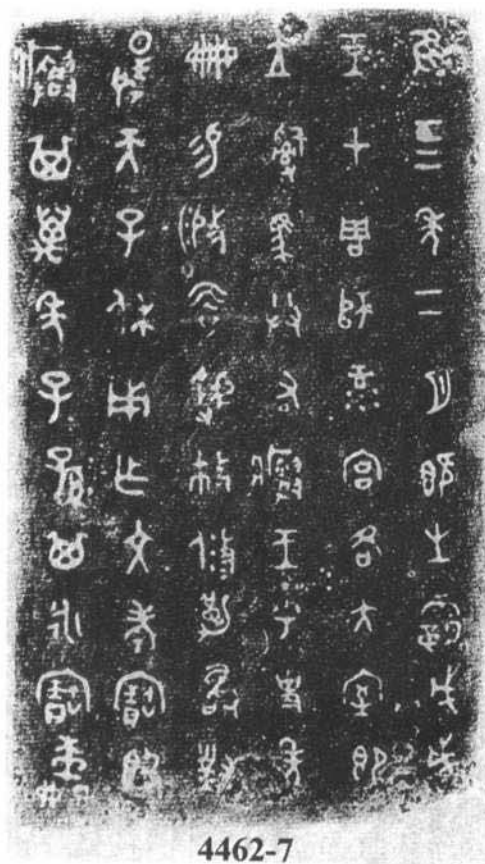 隹四年二月既生霸戊戌
王才周師彔宮各大室即
立𤔲馬共右𤼈王乎史年
冊易攸勒敢對
揚天子休用乍文考寶簋
𤼈其萬年子孫其永寶木羊冊
4462-7